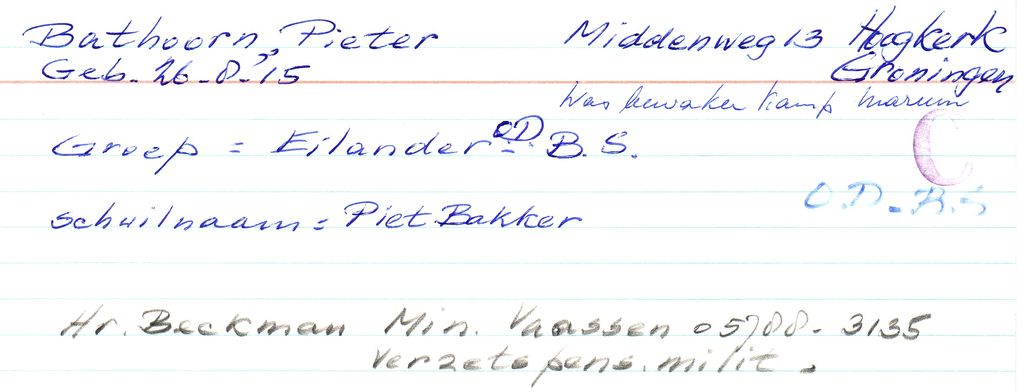 Bathoorn, Pieter Middenweg 13 Hoogkerk
Geb. 26-8-'15 Groningen
Was bewaker kamp Marum
Groep = Eilander O.D. - B.S.
C
schuilnaam = Piet Bakker O.D. - B.S
Hr. Beckman Min. Vaassen 05788-3135
Verzetspens. milit.